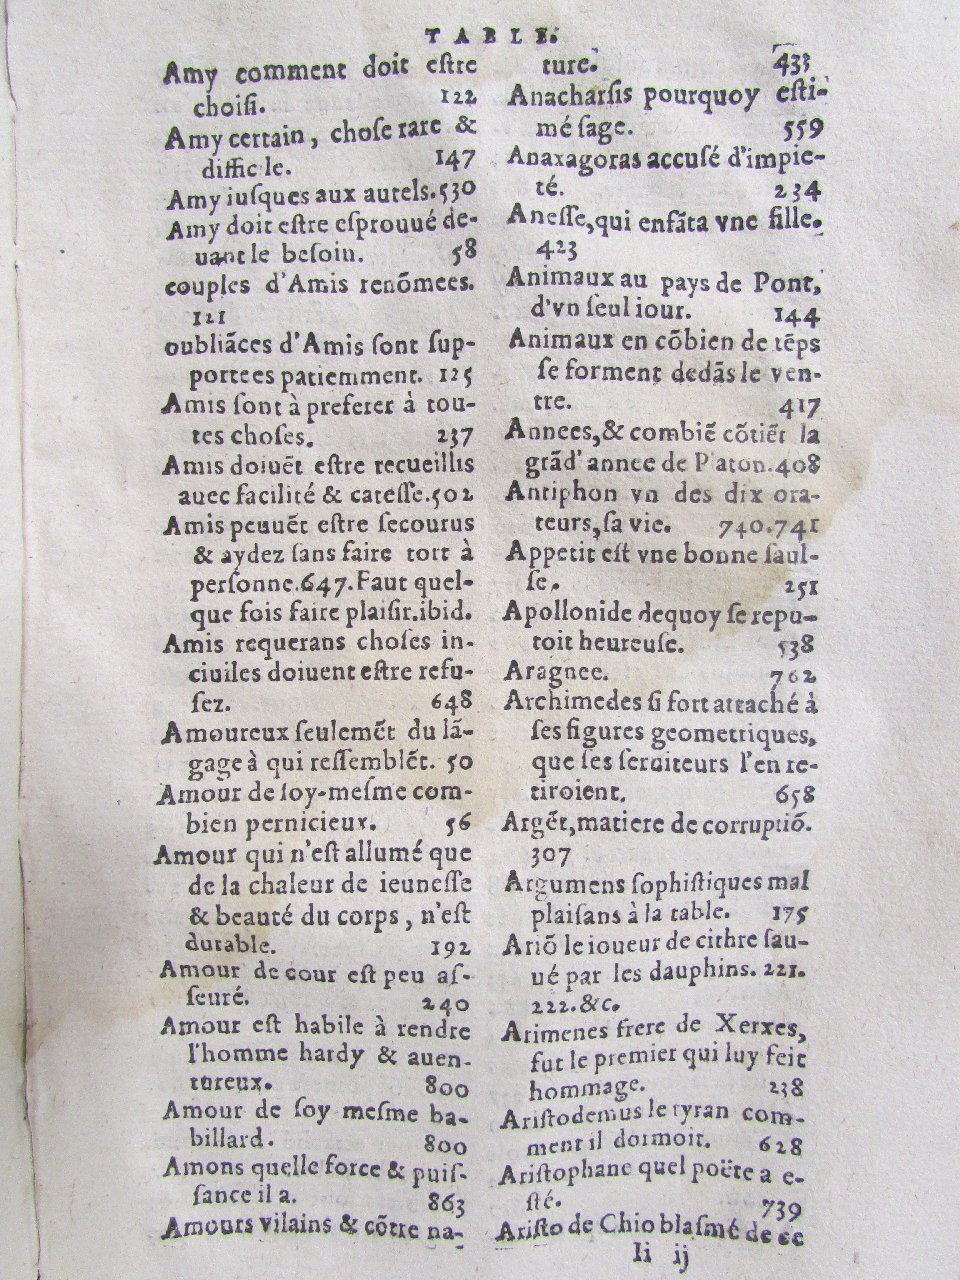 TABLE.
Amy comment doit eſtre
choiſi. 122
Amy certain, choſe rare &
diffic le. 147
Amy iuſques aux autels. 530
Amy doit eſtre eſprouué de-
uant le beſoin. 58
couples d'Amis renõmees.
121
oubliãces d'Amis ſont ſup-
portees patiemment. 125
Amis ſont à preferer à tou-
tes choſes. 237
Amis doiuẽt eſtre recueillis
auec facilité & careſſe. 502
Amis peuuẽt eſtre ſecourus
& aydez ſans faire tort à
perſonne. 647. Faut quel-
que fois faire plaiſir. ibid.
Amis requerans choſes in-
ciuiles doiuent eſtre refu-
ſez. 648
Amoureux ſeulemẽt du lã-
gage à qui reſſemblẽt. 50
Amour de ſoy-meſme com-
bien pernicieux. 56
Amour qui n'eſt allumé que
de la chaleur de ieuneſſe
& beauté du corps, n'eſt
durable. 192
Amour de cour eſt peu aſ-
ſeuré. 240
Amour eſt habile à rendre
l'homme hardy & auen-
tureux. 800
Amour de ſoy meſme ba-
billard. 800
Amons quelle force & puiſ-
ſance il a. 863
Amours vilains & cõtre na-
ture. 433
Anacharſis pourquoy eſti-
mé ſage. 559
Anaxagoras accuſé d'impie-
té. 234
Aneſſe, qui enfãta vne fille.
423
Animaux au pays de Pont,
d'vn ſeul iour. 144
Animaux en cõbien de tẽps
ſe forment dedãs le ven-
tre. 417
Annees, & combiẽ cõtiẽt la
grãd' annee de P aton. 408
Antiphon vn des dix ora-
teurs, ſa vie. 740. 741
Appetit eſt vne bonne ſaul-
ſe. 251
Apollonide dequoy ſe repu-
toit heureuſe. 538
Aragnee. 762
Archimedes ſi fort attaché à
ſes figures geometriques,
que ſes ſeruiteurs l'en re-
tiroient. 658
Argẽt, matiere de corruptiõ.
307
Argumens ſophiſtiques mal
plaiſans à la table. 175
Ariõ le ioueur de cithre ſau-
ué par les dauphins. 221.
222. &c.
Arimenes frere de Xerxes,
fut le premier qui luy feit
hommage. 238
Ariſtodemus le tyran com-
ment il dormoit. 628
Ariſtophane quel poëte a e-
ſté. 739
Ariſto de Chio blaſmé de ce
Ii ij